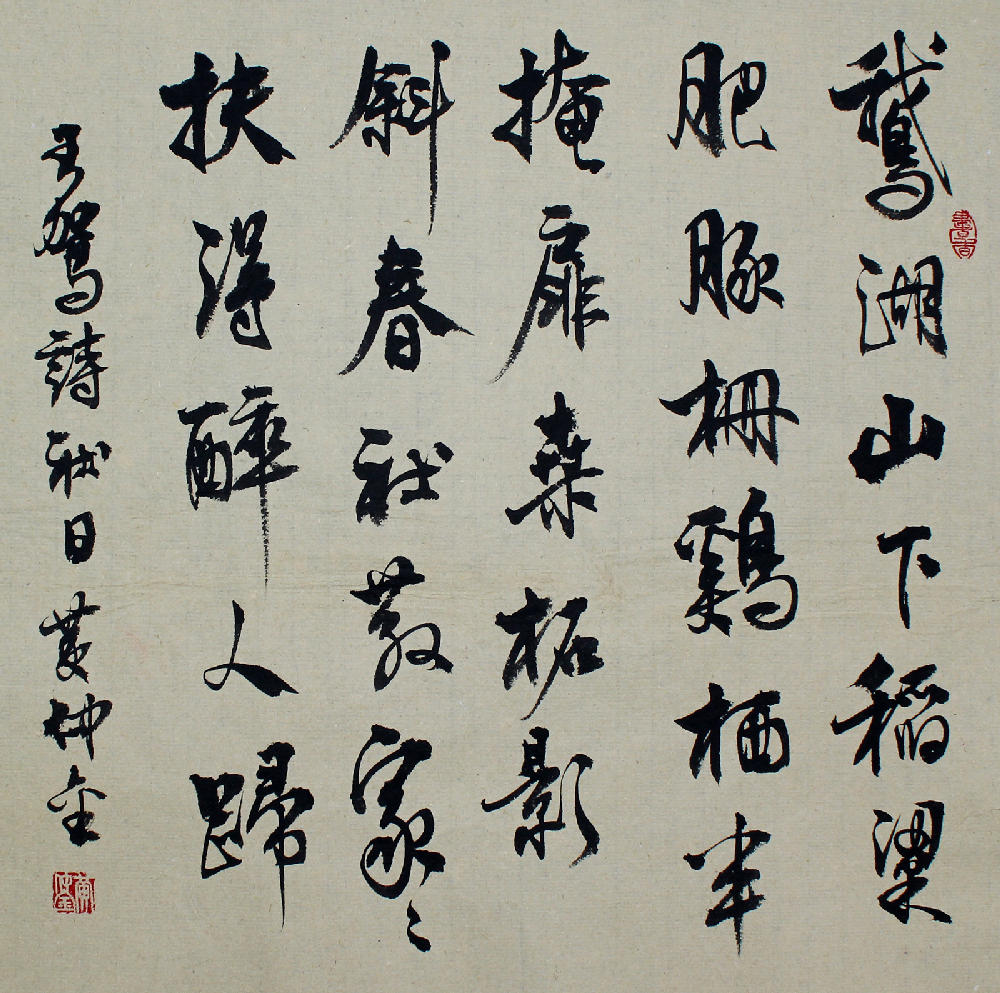 鹅湖山下稻粱
肥豚栅鷄栖半
掩扉桑柘影
斜春社散家〻
扶得醉人歸
王驾詩社日黄仲金